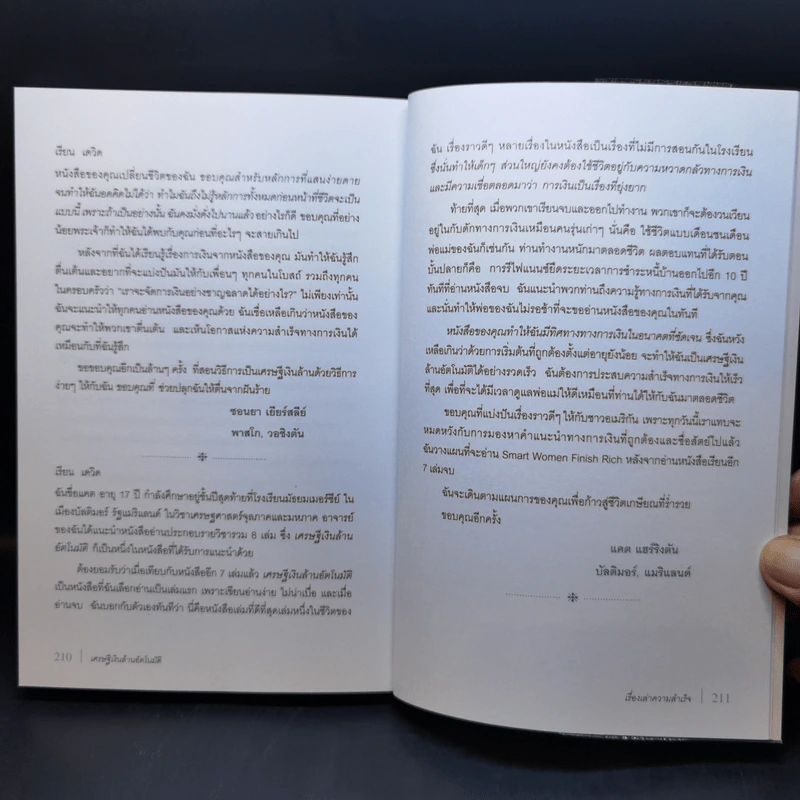 เรียน เดวิด
หนังสือของคุณเปลี่ยนชีวิตของฉัน ขอบคุณสำหรับหลักการที่แสนง่ายดาย
จนทำให้ฉันอดคิดไม่ได้ว่า ทำไมฉันถึงไม่รู้หลักการทั้งหมดก่อนหน้าที่ชีวิตจะเป็น
แบบนี้ เพราะถ้าเป็นอย่างนั้น ฉันคงมั่งคั่งไปนานแล้ว อย่างไรก็ดี ขอบคุณที่อย่าง
น้อยพระเจ้าก็ทำให้ฉันได้พบกับคุณก่อนที่อะไรๆ จะสายเกินไป
หลังจากที่ฉันได้เรียนรู้เรื่องการเงินจากหนังสือของคุณ มันทำให้ฉันรู้สึก
ตื่นเต้นและอยากที่จะแบ่งปันมันให้กับเพื่อนๆ ทุกคนในโบสถ์ รวมถึงทุกคน
ในครอบครัวว่า "เราจะจัดการเงินอย่างชาญฉลาดได้อย่างไร?" ไม่เพียงเท่านั้น
ฉันจะแนะนำให้ทุกคนอ่านหนังสือของคุณด้วย ฉันเชื่อเหลือเกินว่าหนังสือของ
คุณจะทำให้พวกเขาตื่นเต้น และเห็นโอกาสแห่งความสำเร็จทางการเงินได้
เหมือนกับที่ฉันรู้สึก
ขอขอบคุณอีกเป็นล้านๆ ครั้ง ที่สอนวิธีการเป็นเศรษฐีเงินล้านด้วยวิธีการ
ง่ายๆ ให้กับฉัน ขอบคุณที่ ช่วยปลุกฉันให้ตื่นจากฝันร้าย
ซอนยา เยียร์สลีย์
พาสโก, วอชิงตัน
เรียน เดวิด
ฉันชื่อแคต อายุ 17 ปี กำลังศึกษาอยู่ชั้นปีสุดท้ายที่โรงเรียนมัธยมเมอร์ซีย์ ใน
เมืองบัลติมอร์ รัฐแมริแลนด์ ในวิชาเศรษฐศาสตร์จุลภาคและมหภาค อาจารย์
ของฉันได้แนะนำหนังสืออ่านประกอบรายวิชารวม 8 เล่ม ซึ่ง เศรษฐีเงินล้าน
อัตโนมัติ ก็เป็นหนึ่งในหนังสือที่ได้รับการแนะนำด้วย
ต้องยอมรับว่าเมื่อเทียบกับหนังสืออีก 7 เล่มแล้ว เศรษฐีเงินล้านอัตโนมัติ
เป็นหนังสือที่ฉันเลือกอ่านเป็นเล่มแรก เพราะเขียนอ่านง่าย ไม่น่าเบื่อ และเมื่อ
อ่านจบ ฉันบอกกับตัวเองทันทีว่า นี่คือหนังสือเล่มที่ดีที่สุดเล่มหนึ่งในชีวิตของ
210 | เศรษฐีเงินล้านอัตโนมัติ
ฉัน เรื่องราวดีๆ หลายเรื่องในหนังสือเป็นเรื่องที่ไม่มีการสอนกันในโรงเรียน
ซึ่งนั่นทำให้เด็กๆ ส่วนใหญ่ยังคงต้องใช้ชีวิตอยู่กับความหวาดกลัวทางการเงิน
และมีความเชื่อตลอดมาว่า การเงินเป็นเรื่องที่ยุ่งยาก
ท้ายที่สุด เมื่อพวกเขาเรียนจบและออกไปทำงาน พวกเขาก็จะต้องวนเวียน
อยู่ในกับดักทางการเงินเหมือนคนรุ่นเก่าๆ นั่นคือ ใช้ชีวิตแบบเดือนชนเดือน
พ่อแม่ของฉันก็เช่นกัน ท่านทำงานหนักมาตลอดชีวิต ผลตอบแทนที่ได้รับตอน
บั้นปลายก็คือ การรีไฟแนนซ์ยืดระยะเวลาการชำระหนี้บ้านออกไปอีก 10 ปี
ทันทีที่อ่านหนังสือจบ ฉันแนะนำพวกท่านถึงความรู้ทางการเงินที่ได้รับจากคุณ
และนั่นทำให้พ่อของฉันไม่รอช้าที่จะขออ่านหนังสือของคุณในทันที
หนังสือของคุณทำให้ฉันมีทิศทางทางการเงินในอนาคตที่ชัดเจน ซึ่งฉันหวัง
เหลือเกินว่าด้วยการเริ่มต้นที่ถูกต้องตั้งแต่อายุยังน้อย จะทำให้ฉันเป็นเศรษฐีเงิน
ล้านอัตโนมัติได้อย่างรวดเร็ว ฉันต้องการประสบความสำเร็จทางการเงินให้เร็ว
ที่สุด เพื่อที่จะได้มีเวลาดูแลพ่อแม่ให้ดีเหมือนที่ท่านได้ให้กับฉันมาตลอดชีวิต
ขอบคุณที่แบ่งปันเรื่องราวดีๆ ให้กับชาวอเมริกัน เพราะทุกวันนี้เราแทบจะ
หมดหวังกับการมองหาคำแนะนำทางการเงินที่ถูกต้องและซื่อสัตย์ไปแล้ว
ฉันวางแผนที่จะอ่าน Smart Women Finish Rich หลังจากอ่านหนังสือเรียนอีก
7 เล่มจบ
ฉันจะเดินตามแผนการของคุณเพื่อก้าวสู่ชีวิตเกษียณที่ร่ำรวย
ขอบคุณอีกครั้ง
แคต แฮร์ริงตัน
บัลติมอร์, แมริแลนด์
เรื่องเล่าความสำเร็จ | 211